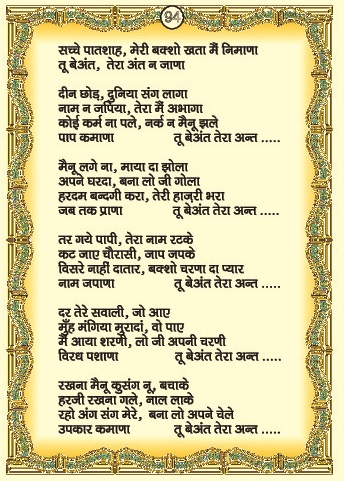 94
सच्चे पातशाह, मेरी बक्शो खता मैं निमाणा
तू बेअंत, तेरा अंत न जाणा
दीन छोड़, दुनिया संग लागा
नाम न जपिया, तेरा मैं अभागा
कोई कर्म ना पले, नर्क न मैनू झले
पाप कमाणा तू बेअंत तेरा अन्त .....
मैनू लगे ना, माया दा झोला
अपने घरदा, बना लो जी गोला
हरदम बन्दगी करा, तेरी हाजुरी भरा
जब तक प्राणा तू बेअंत तेरा अन्त .....
तर गये पापी, तेरा नाम रटके
कट जाए चौरासी, जाप जपके
विसरे नाहीं दातार, बक्शो चरणा दा प्यार
नाम जपाणा तू बेअंत तेरा अन्त .....
दर तेरे सवाली, जो आए
मुँह मंगिया मुरादां, वो पाए
मैं आया शरणी, लो जी अपनी चरणी
विरध पशाणा तू बेअंत तेरा अन्त .....
रखना मैनू कुसंग नू, बचाके
हरजी रखना गले, नाल लाके
रहो अंग संग मेरे, बना लो अपने चेले
उपकार कमाणा तू बेअंत तेरा अन्त .....